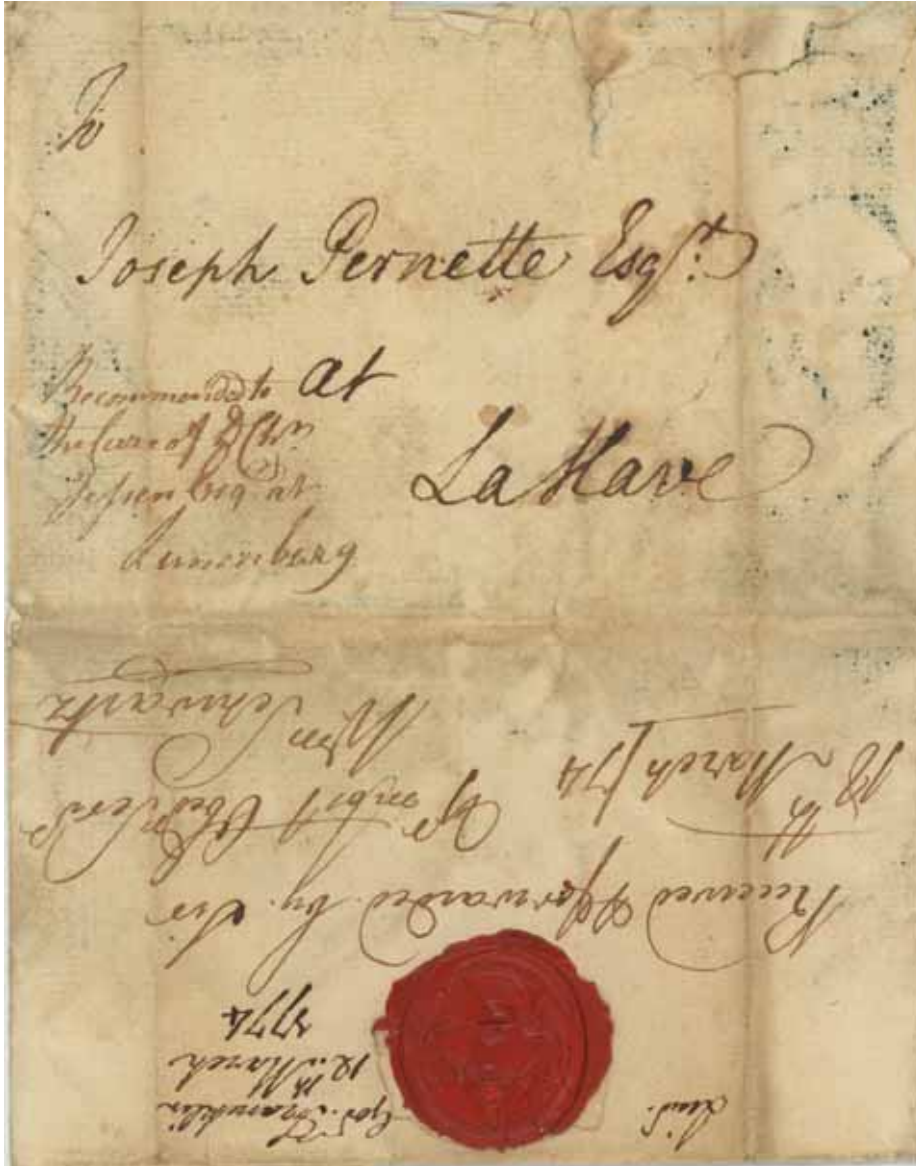 To
Joseph Pernette Esqr.
at
La Have
Recommended to
the Care of D Chrn
Jessen Esq at
Lunenburg
Received & forwarded by Sir
Yr most Obed Serv
Wm Schwartz
18th March /74
Govr. Franklin
12th March
1774